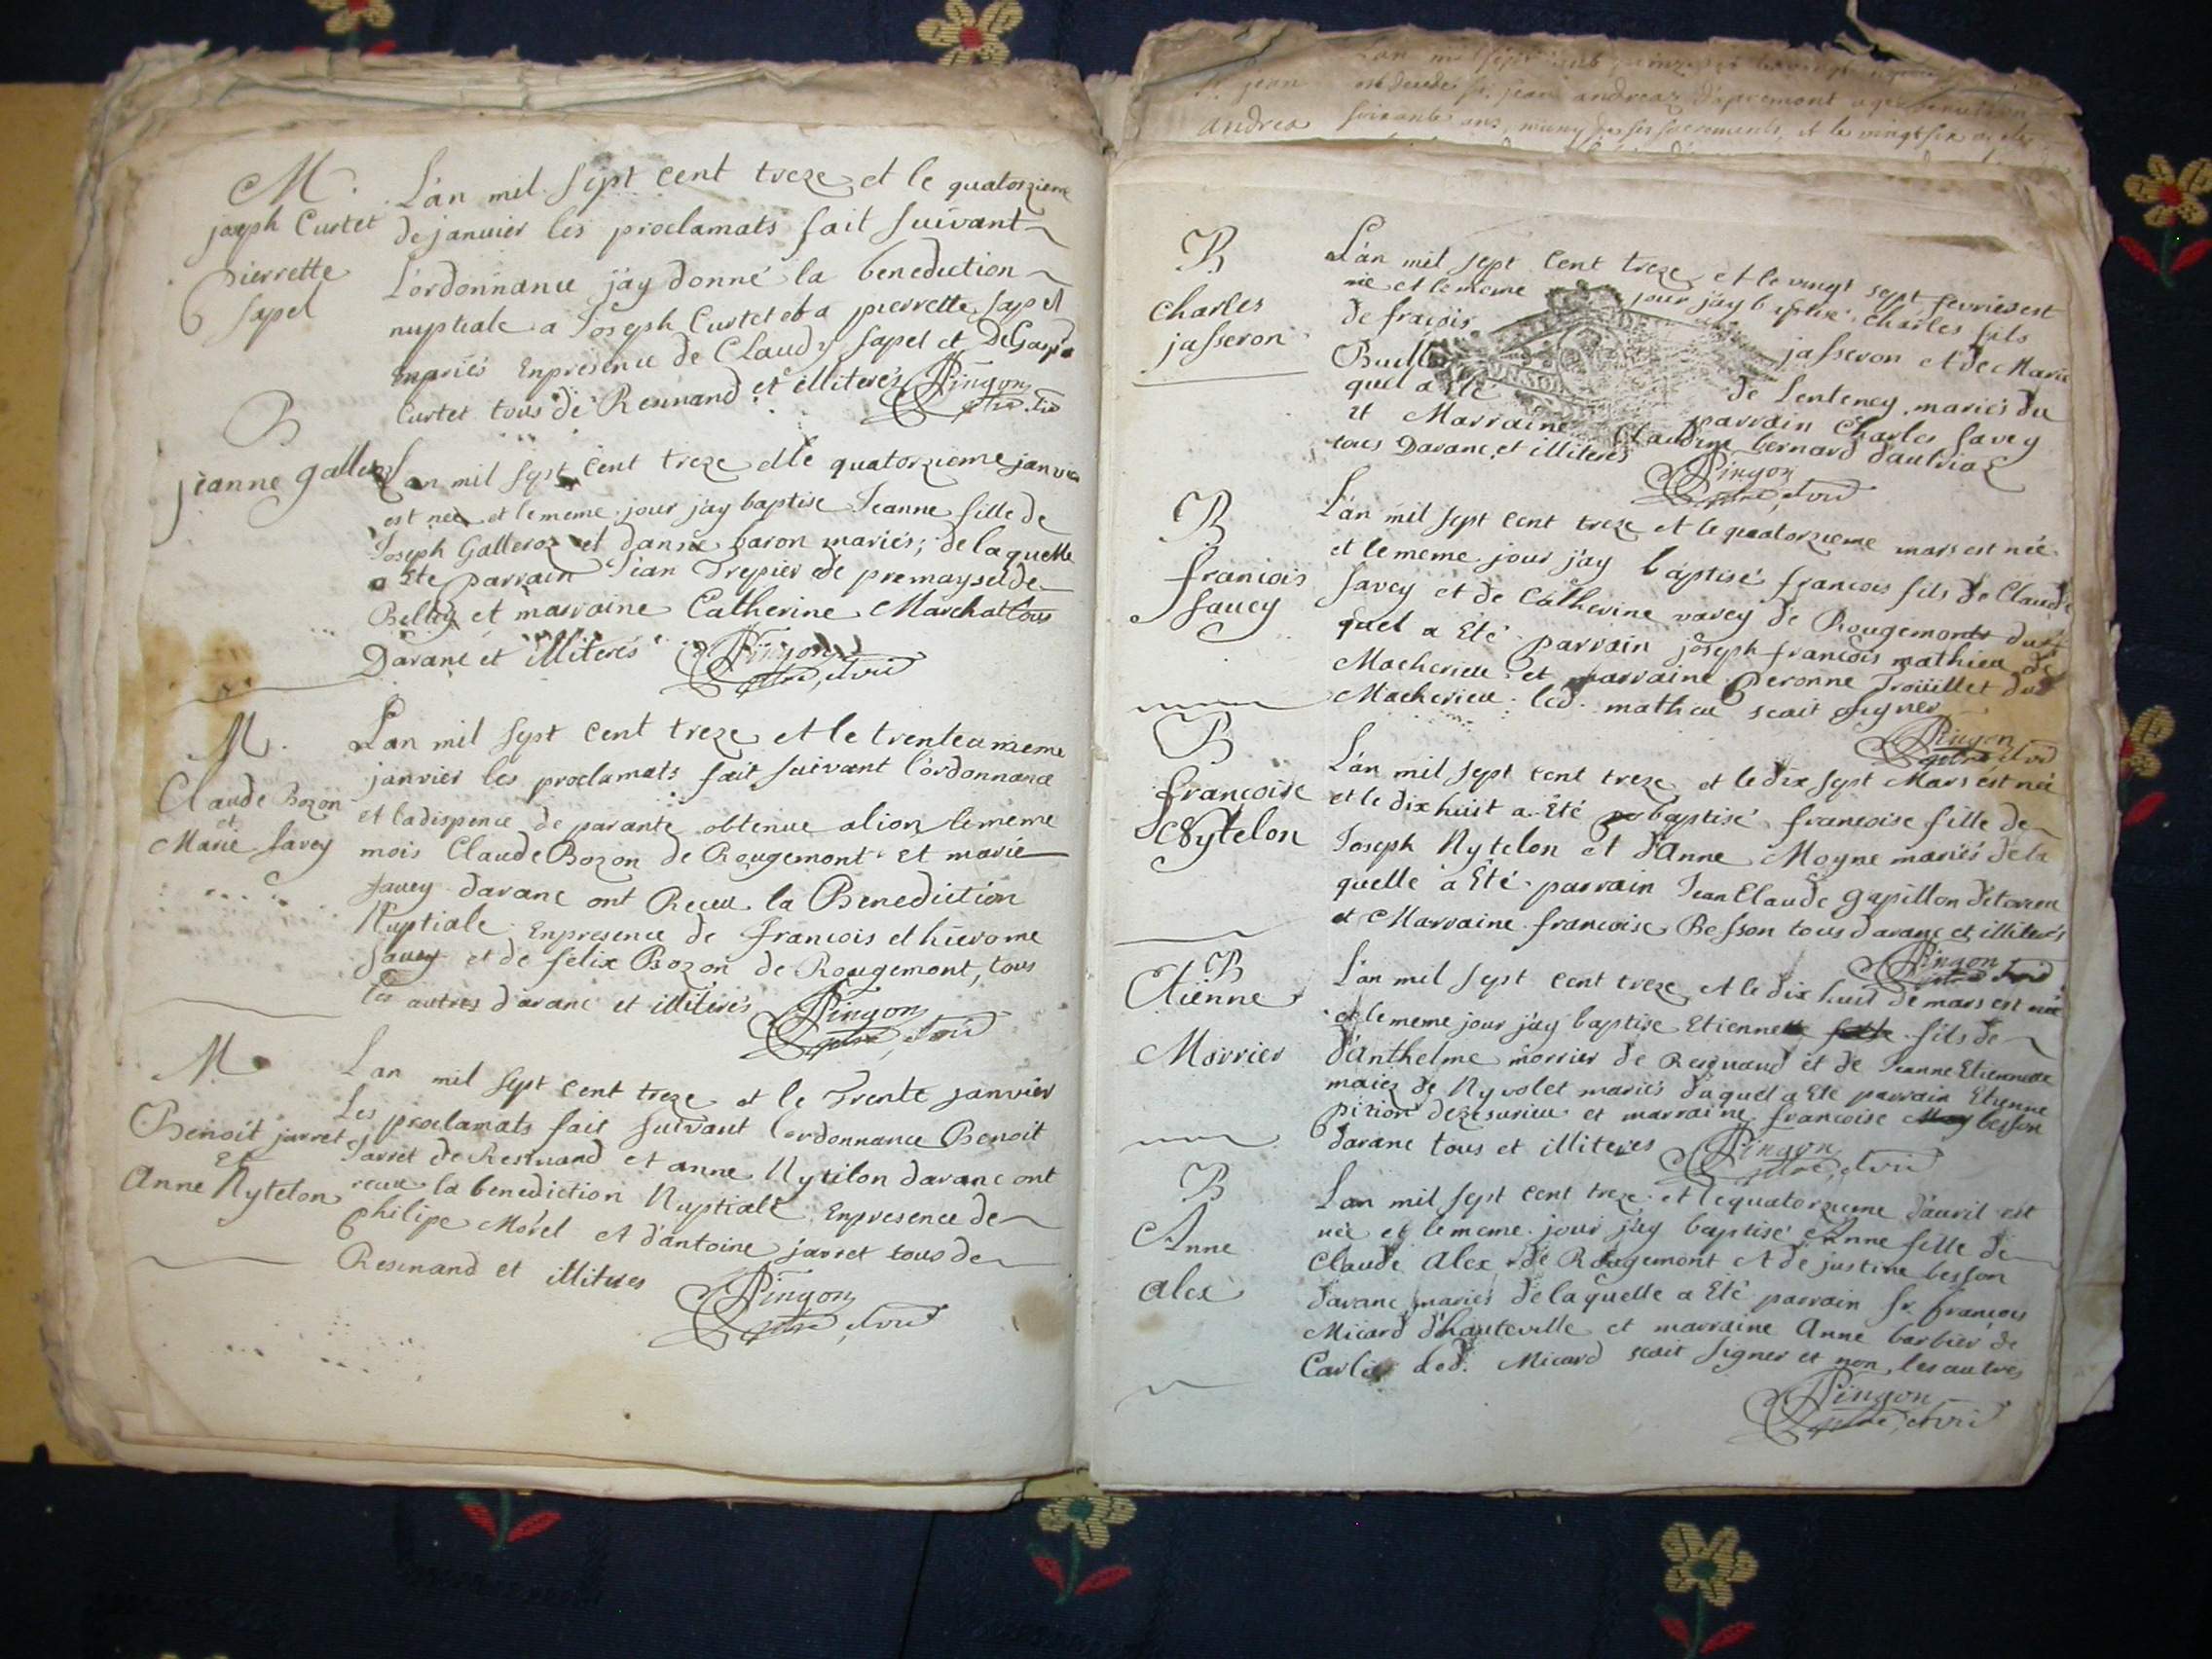 M.
joseph Curtet
pierrette
sapel
L'an mil sept cent treze et le quatorzieme
de januier les proclamats fait suivant
L'ordonnance j'ay donné la benediction
nuptiale a Joseph Curtet et a pierrette sapel
mariés Enpresence de Claudy sapel et De
Curtet tous de Resinand et illiterés Pingon
B
jeanne galleroz
L'an mil sept cent treze et le quatorzieme janvier
est neé et le meme jour j'ay baptise Jeanne fille de
Joseph Galleroz et baron mariés; de laquelle
a Ete parrain Jean Trepier de premaysel de
Belley et marraine Catherine Marchat tous
Davanc et illiterés Pingon
M.
Claude Bozon
et
Marie savey
L'an mil sept cent treze et le trente
janvier les proclamats fait suivant l'ordonnance
et la dispence de parante obtenue alion le meme
mois Claude Bozon de Rougemont et marie
savey davanc ont Receu la Benediction
Nuptiale Enpresence de francois et hierome
savey et de felix Bozon de Rougemont, tous
les autres d'avanc et illiterés Pingon
M
Benoit jarret
Et
Anne Nytelon
L'an mil sept cent treze et le Trente janvier
Les proclamats fait suivant l'ordonnance Benoit
Jarret de Resinand et anne Nytelon davanc ont
receu la benediction Nuptiale Enpresence de
philipe Morel et d'antoine jarret tous de
Resinand et illiteres Pingon
L'an mil sept cent
Sr. jean
andrea
est decedé Sr. jean andreaz d'apremont
soixante ans, muny de ses sacrements, et le vingt six
B
charles
jasseron
L'an mil sept Cent treze et le vingt sept fevrier est
né et le meme jour j'ay baptisé charles fils
de fracois jasseron et de Marie
de Lentency mariés du
quel a Eté parrain Charles savey
et Marraine Claudine bernard d'autria
tous Davanc et illiterés Pingon
B
francois
savey
L'an mil sept cent treze et le quatorzieme mars est née
et le meme jour j'ay baptisé francois fils de Claude
savey et de Catherine varey de Rougemont du
quel a Eté parrain joseph francois mathieu de
Macherieu et marraine peronne Troüillet du
Macherieu led. mathieu scait signer
Pingon
B
francoise
Nytelon
L'an mil sept cent treze et le dix sept Mars est née
et le dix huit a Eté baptisé francoise fille de
Joseph Nytelon et d'Anne Moyne mariés de la
quelle a Eté parrain Jean Claude gapillon
et Marraine francoise Besson tous davanc et illiterés
Pingon
B
Etienne
Morrier
L'an mil sept cent treze et le dix huit de mars est née
et le meme jour j'ay baptise Etienne fils de
d'Anthelme morrier de Resinand et de Jeanne Etiennette
maiez de Nyvolet mariés duquel a Eté parrain Etienne
pizion et marraine francoise besson
davanc tous et illiteres Pingon
B
Anne
alex
L'an mil sept cent treze et le quatorzieme d'auril est
née et le meme jour j'ay baptisé Anne fille de
Claude Alex de Rougemont et de justine besson
davanc mariés de laquelle a Eté parrain Sr. francois
Micard d'hauteville et marraine Anne barbier de
Corlier led. Micard scait signer et non les autres
Pingon